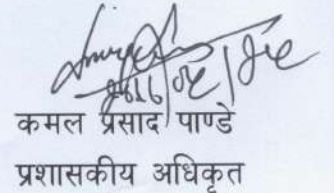 कमल प्रसाद पाण्डे
प्रशासकीय अधिकृत